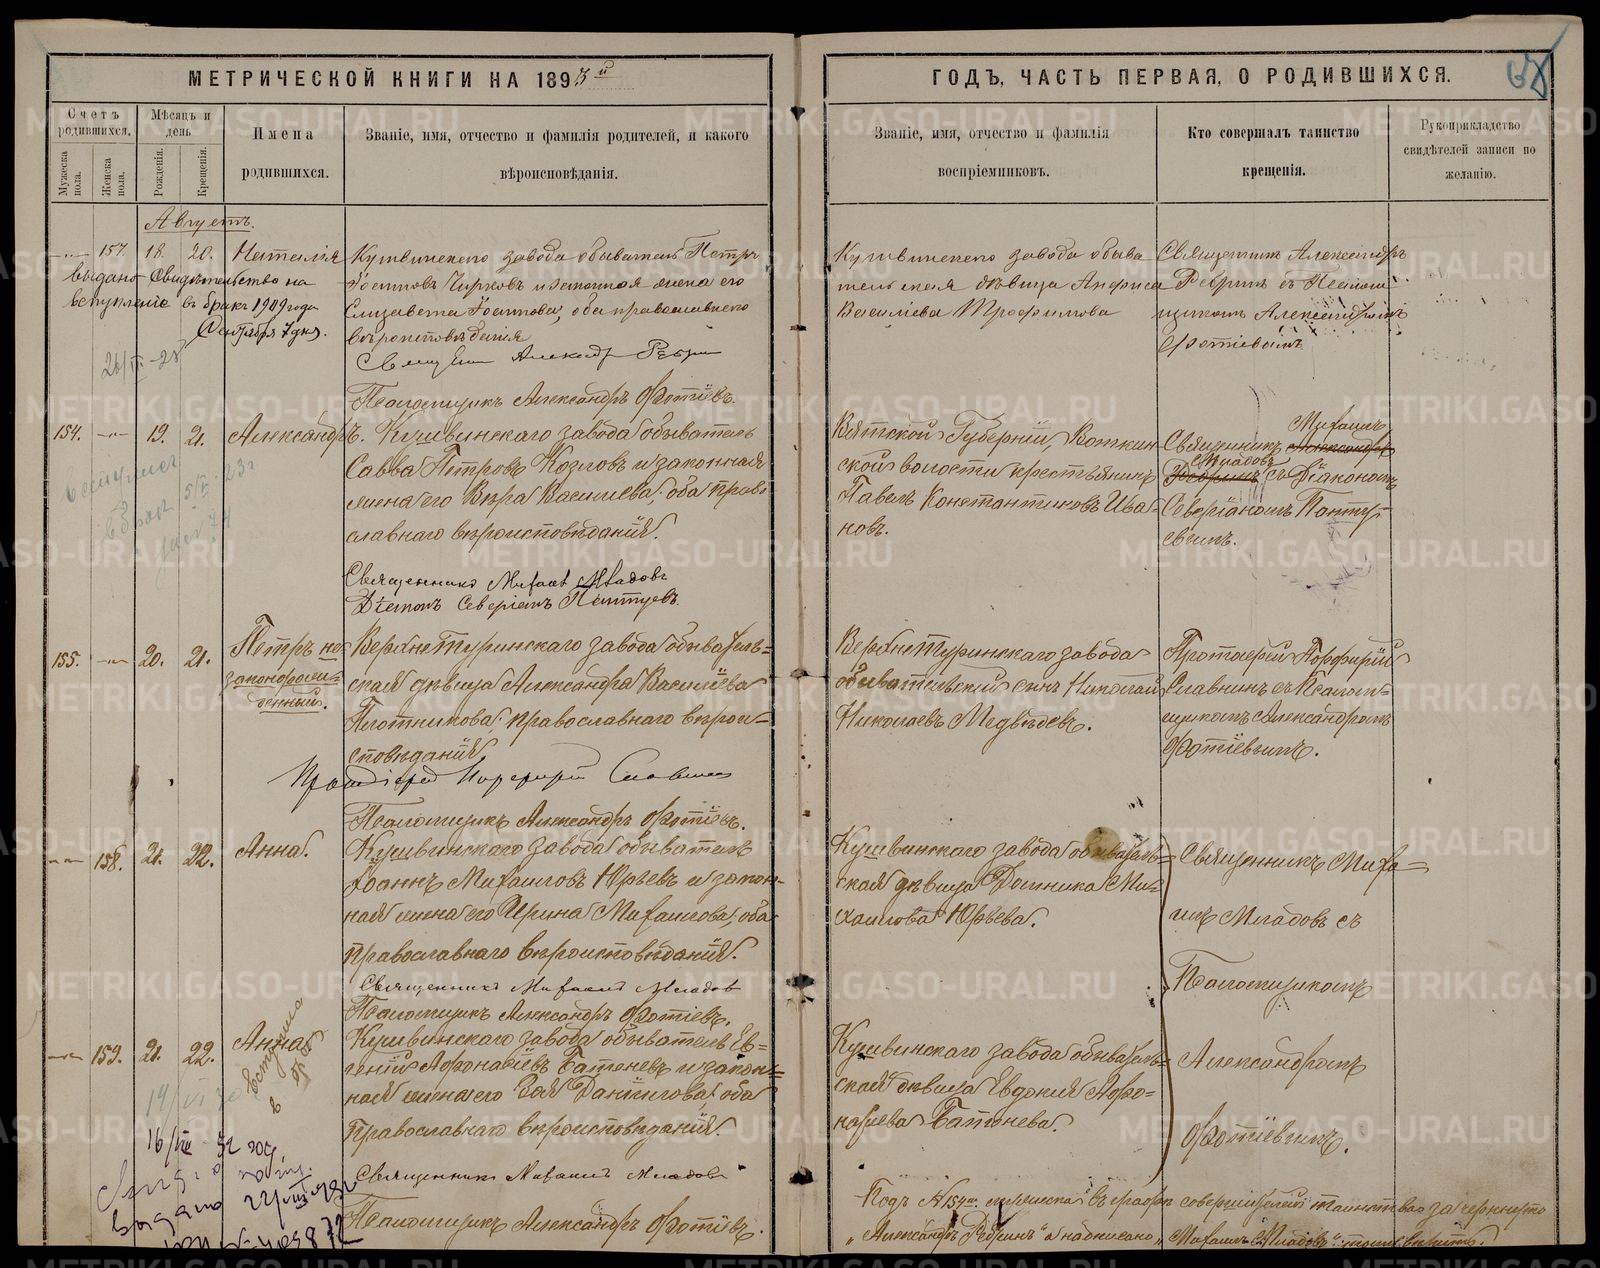 МЕТРИЧЕСКОЙ КНИГИ НА 1893й
ГОДЪ, ЧАСТЬ ПЕРВАЯ, О РОДИВШИХСЯ.
Счетъ родившихся.
Мужеска пола.
Женска пола.
Мѣсяцъ и день
Рожденія.
Крещенія.
Имена
родившихся.
Званіе, имя, отчество и фамилія родителей, и какого
вѣроисповѣданія.
Званіе, имя, отчество и фамилія
воспріемниковъ.
Кто совершалъ таинство
крещенія.
Рукоприкладство
свидѣтелей записи по
желанію.
Августъ.
157. 18. 20. Наталія
выдано Свидѣтельство на
вступленіе въ бракъ 1909 года
Сентября 7 дня.
Кушвинскаго завода обыватель Петръ
Чирковъ и законная жена его
Елизавета Іоаннова, оба православнаго
вѣроисповѣданія
Священ Александръ Ребрин
Псаломщикъ Александръ Фотіевъ.
Кушвинскаго завода обыва
тельская дѣвица Анфиса
Василіева Трофимова
Священникъ Александръ
Ребринъ съ Псалом
щикомъ Александромъ
Фотіевымъ
154. 19. 21. Александръ.
Кушвинскаго завода обыватель
Савва Петровъ Козловъ и законная
жена его Вѣра Василіева, оба право
славнаго вѣроисповѣданія.
Священникъ Михаилъ Младовъ
Діаконъ Северіанъ Пантуевъ.
Вятской Губерніи, Воткин
ской волости крестьянинъ
Павелъ Константиновъ Ива
новъ.
Михаилъ
Священникъ Александръ
Младовъ
Ребринъ съ Діакономъ
Северіаномъ Панту
евымъ.
155. 20. 21. Петръ не
законорож
денный.
Верхнетуринскаго завода обыватель=
ская дѣвица Александра Василіева
Плотникова; православнаго вѣроис=
повѣданія
Протоіерей Порфирій Славнин
Псаломщикъ Александръ Фотіевъ.
Верхнетуринскаго завода
обывательскій сынъ Николай
Николаевъ Медвѣдевъ.
Протоіерей Порфирій
Славнинъ съ Псалом=
щикомъ Александромъ
Фотіевымъ.
158. 21. 22. Анна.
Кушвинскаго завода обыватель
Іоаннъ Михаиловъ Юрьевъ и закон-
ная жена его Ирина Михаилова, оба
православнаго вѣроисповѣданія.
Священникъ Михаилъ Младовъ
Псаломщикъ Александръ Фотіевъ.
Кушвинскаго завода обыватель=
ская дѣвица Домника Ми=
хаилова Юрьева.
Священникъ Миха=
илъ Младовъ съ
Псаломщикомъ
159. 21. 22. Анна
Вступила
в брак
Кушвинскаго завода обыватель Ев=
геній Афонасіевъ Батеневъ и закон=
ная жена его Зоя Даніилова, оба
православнаго вѣроисповѣданія.
Священникъ Михаилъ Младовъ
Псаломщикъ Александръ Фотіевъ.
Кушвинскаго завода обыватель=
ская дѣвица Евдокія Афо=
насіева Батенева.
Александромъ
Фотіевымъ.
Подъ №154мъ мужеска въ графѣ совершителей таинства зачеркнуто
„Александръ Ребринъ" а надписано „Михаилъ Младовъ"
METRIKI.GASO-URAL.RU